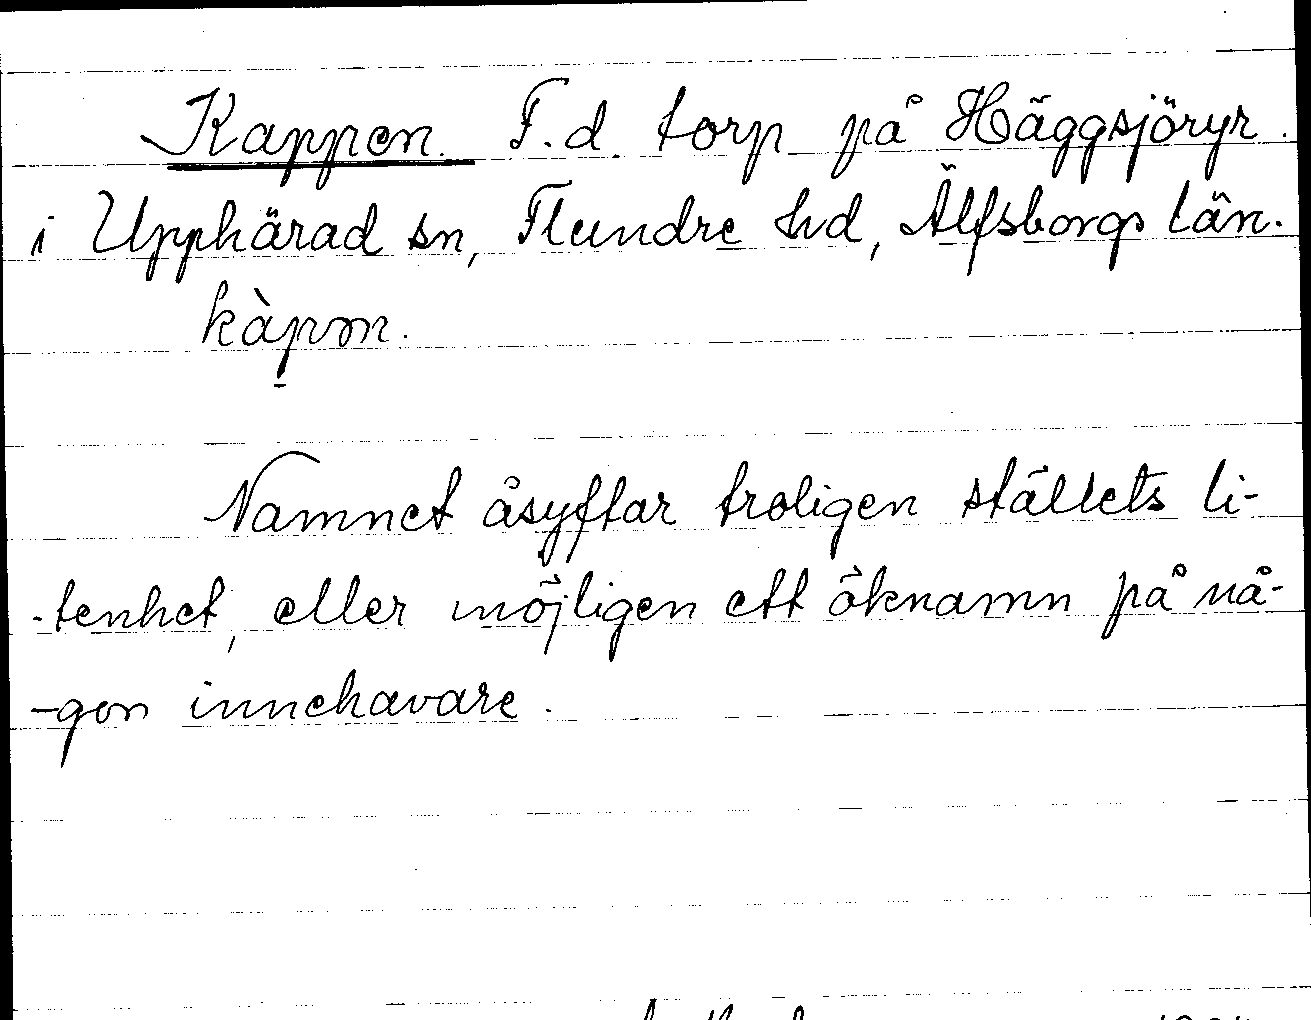 Kappen. F.d. torp på Häggsjöryr.
i Upphärad sn, Flundre hd, Älfsborgs län.
kàpm.
Namnet åsyftar troligen ställets li-
-tenhet, eller möjligen ett öknamn på nå-
-gon innehavare.